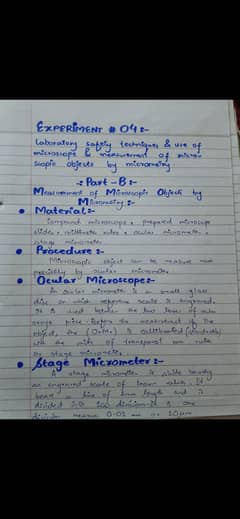 EXPERIMENT # 04:-
Laboratory safety techniques & use of
microscope & measurement of micro-
scopic objects by micrometry
-: Part - B:-
Measurement of Microscopic Objects by
Micrometry :-
Material:-
Compound microscope, prepared microscope
slides, millimeter ruler, ocular micrometer,
stage micrometer
Procedure :-
Microscopic object can be measured more
precisely by ocular micrometer
Ocular Microscope:-
An ocular micrometer is a small glass
disc on which scale is engraved.
It is used between the two lens of
piece. Before the measurement of the
object, the is calibrated
with the aid of transparent ruler
or stage micrometer
Stage Micrometer:-
A stage micrometer is slide bearing
an engraved scale of known value. It
bears a line of length and is
divided 100 division. one
division means 0.01 mm or 10µm